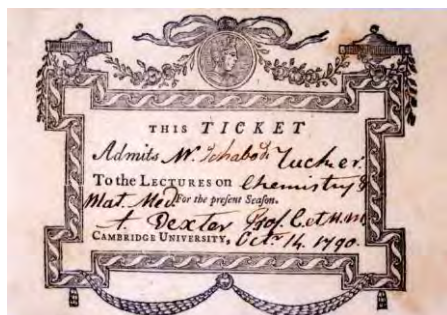 THIS TICKET
Admits Mr. Ichabod Tucker.
To the LECTURES on Chemistry &
Mat. Med. For the present Season.
A. Dexter Prof. C. et M. M.
CAMBRIDGE UNIVERSITY. Octr. 14. 1790.